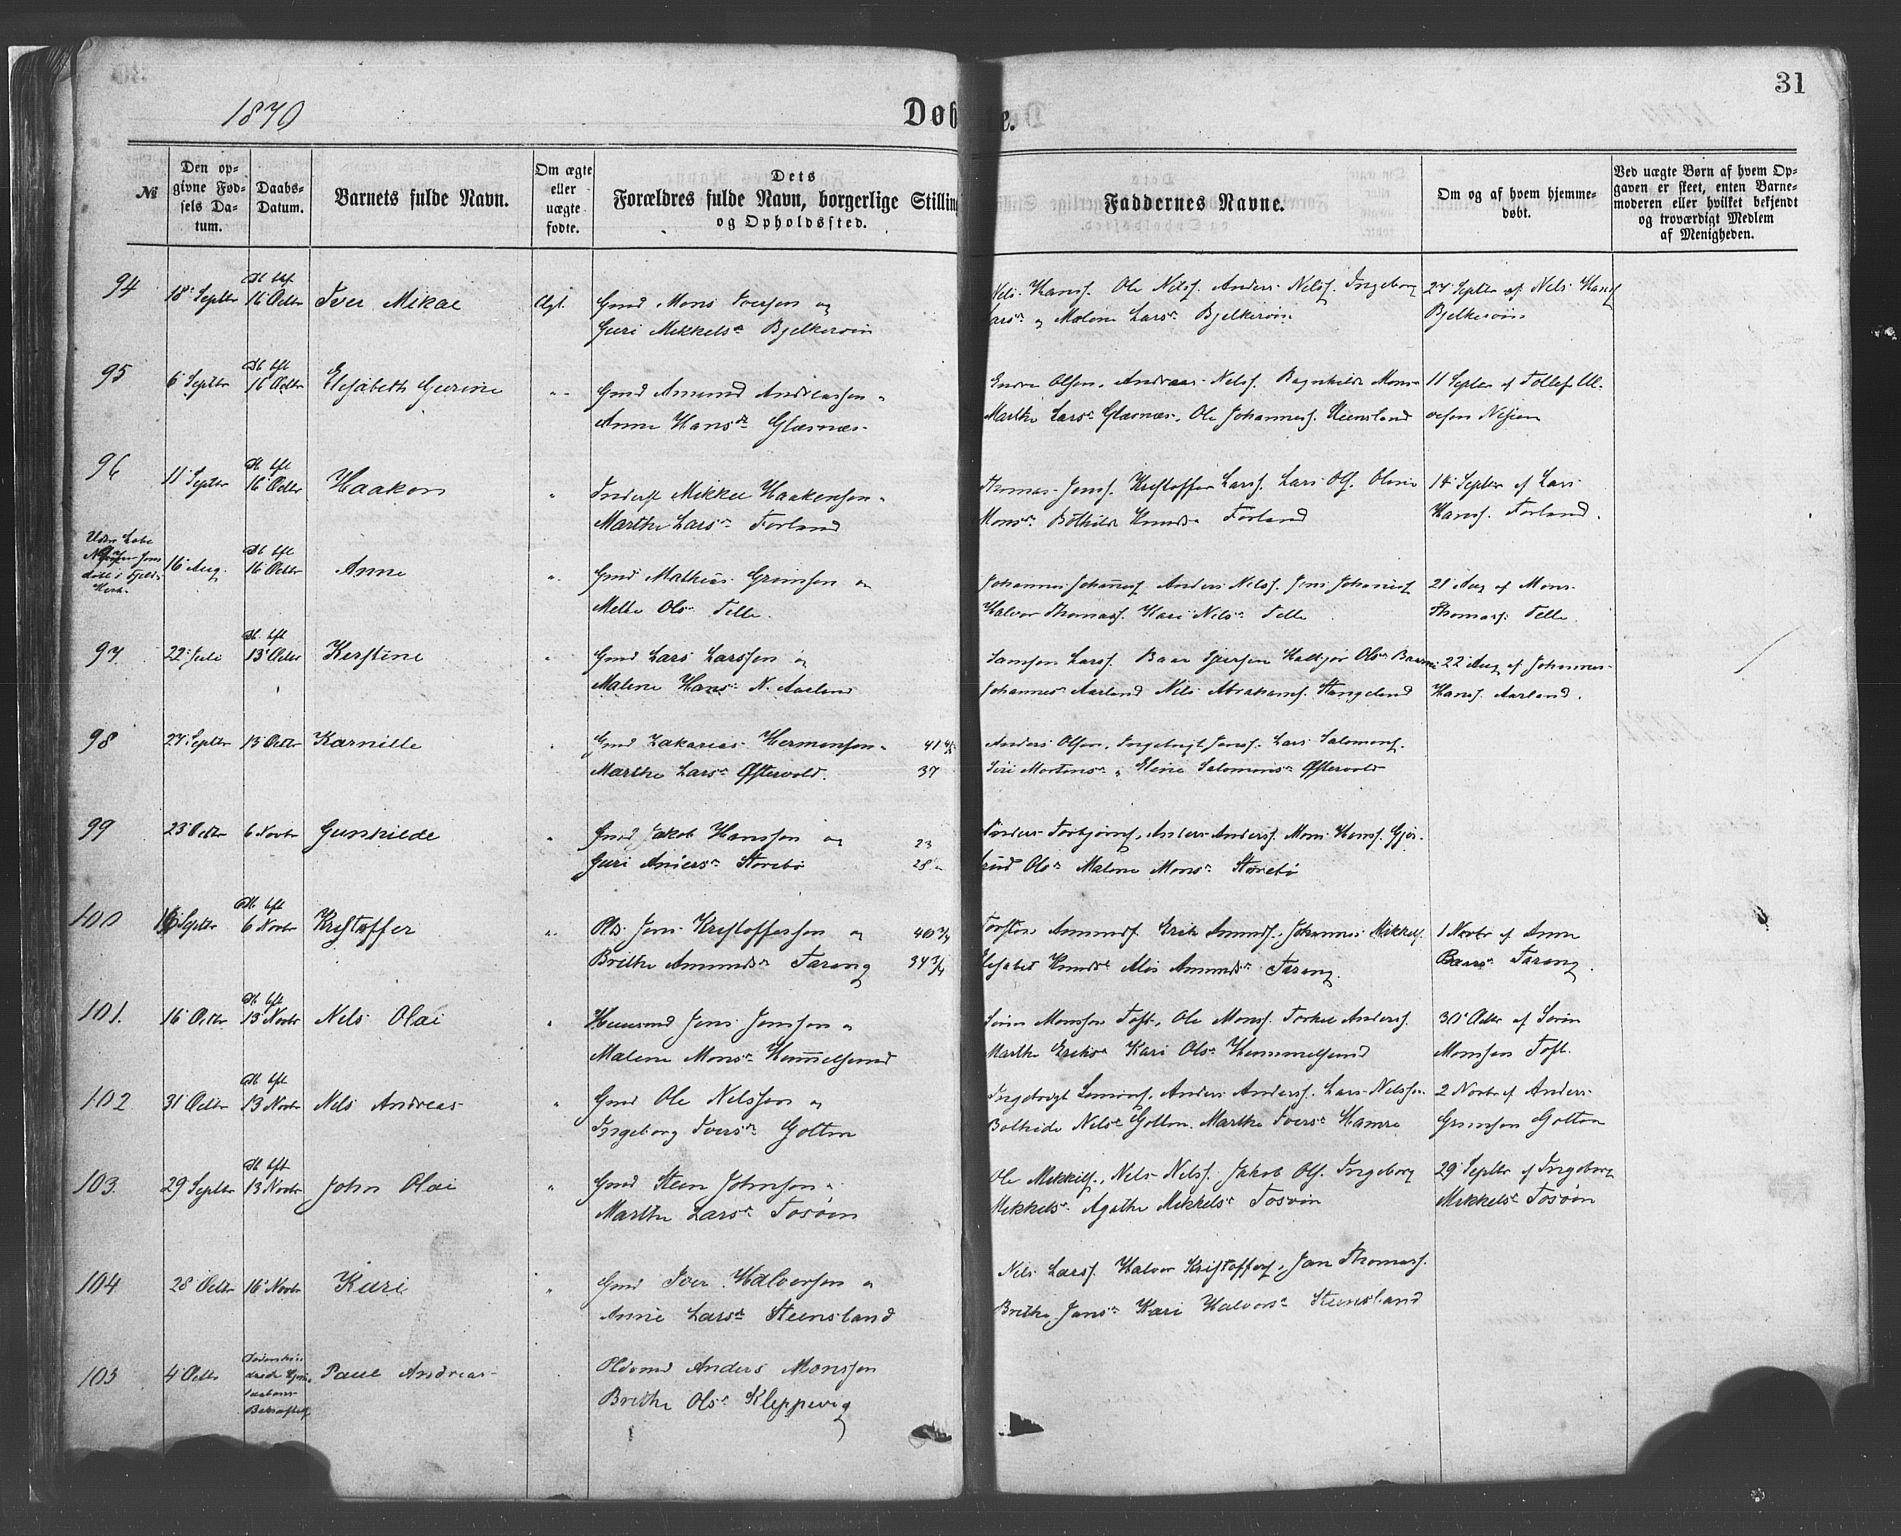 31
1870
Døb e.
№
Den op-
givne Fød-
sels Da-
tum.
Daabs-
Datum.
Barnets fulde Navn.
Om ægte
eller
uægte
fødte.
Dets
Forældres fulde Navn, borgerlige Stilling
og Opholdssted.
Faddernes Navne.
Om og af hvem hjemme-
døbt.
Ved uægte Børn af hvem Op-
gaven er skeet, enten Barne-
moderen eller hvilket bekjendt
og troværdigt Medlem
af Menigheden.
94 18 Septbr 16 Octbr Iver Mikal Ægt. Gmd Mons Iversen og
Guri Mikkelsdr Bjelkerøin
Nels Hansf. Ole Nelsf. Anders Nelsf. Ingeborg
Larsdr og Malene Larsdr Bjelkerøin
24 Septbr af Nels Hansf
Bjelkerøin
95 6 Septbr 16 Octbr Elisabeth Gurine Gmd Amund Andreassen
Anne Hansdr Glæsnæs
Endre Olsen, Andreas Nelsf. Ragnhilde Mons
Marthe Larsdr Glæsnæs, Ole Johannesf. Steensland
11 Septbr af Tollef
96 11 Septbr 16 Octbr Haakon Inderst Mikkel Haakensen
Marthe Larsdr Forland
Thomas Jonsf. Kristoffer Larsf. Lars Olsf. Oline
Monsdr Bothilde Knudsdr Forland
14 Septbr af Lars
Hansf. Forland.
Uden Lobe
16 Aug. 16 Octbr Anne Gmd Mathias Grimsen og
Mette Olsdr Telle.
Johannes Johannesf Anders Nelsf. Jens Johannesf
Halvor Thomasf. Kari Nelsdr Telle
21 Aug af Mons
Thomasf. Telle.
97. 22 Juli 13 Octbr Kerstine Gmd Lars Larssen og
Malene Hansdr N. Aarland
Samson Larsf. Baar Iversen Haldjør Olsdr
Johannes Aarland Nils Abrahamsf. Stangeland
22 Aug af Johannes
Hansf. Aarland.
98 27 Septbr 13 Octbr Karnille Gmd Zakarias Hermansen 41
Marthe Larsdr Østervold. 37
Anders Olsen, Ingebrigt Jonsf. Lars Salomonsf.
Siri Mortensdr, Eline Salomonsdr Østervold
99 23 Octbr 6 Novbr Gunhilde Gmd Jakob Hanssen og 23
Guri Andersdr Storebø 28
Anders Torbjørnsf., Anders Andersf. Mons Hansf. Gjør-
trud Olsdr Malene Monsdr Storebø
100 6 Novbr Kristoffer Jens Kristoffersen og 40 3/4
Brithe Amundsdr Tarang 34 3/4
Torsten Amundsf. Erik Amundsf., Johannes Mikkelsf.
Elisabet Knudsdr Alis Amundsdr Tarang.
1 Novbr af Anne
Baarsdr Tarang.
101. 16 Octbr 13 Novbr Nels Olai Huusmd Jens Jenssen og
Malene Monsdr Hummelsund
Søren Monssen Toft, Ole Monsf. Torkel Andersf.
Marthe Eriksdr Kari Olsdr Hummelsund
30 Octbr af Søren
Monssen Toft.
102 31 Octbr 13 Novbr Nels Andreas Gmd Ole Nelssen og
Ingeborg Iversdr Golten
Ingebrigt Simonsf, Anders Andersf. Lars Nelssen
Bolhide Nelsdr Golten. Marthe Iversdr Hamre
2 Novbr af Anders
Grimsen Golten
103. 29 Septbr 13 Novbr John Olai Gmd Steen Johnsen
Marthe Larsdr Tosøen
Ole Mikkelsf., Nels Nelsf. Jakob Olsf. Ingeborg
Mikkelsdr Agathe Mikkelsdr Tosøin
29 Septbr af Ingeborg
Mikkelsdr Tosøin
104 28 Octbr 16 Novbr Kari Gmd Iver Halvorsen og
Anne Larsdr Steensland
Nels Larsf. Halvor Kristoffersf, Jan Thomasf.
Brithe Jansdr Kari Halvorsdr Steensland
105 4 Octbr Paul Andreas Anders Monssen
Brithe Olsdr Kleppevig